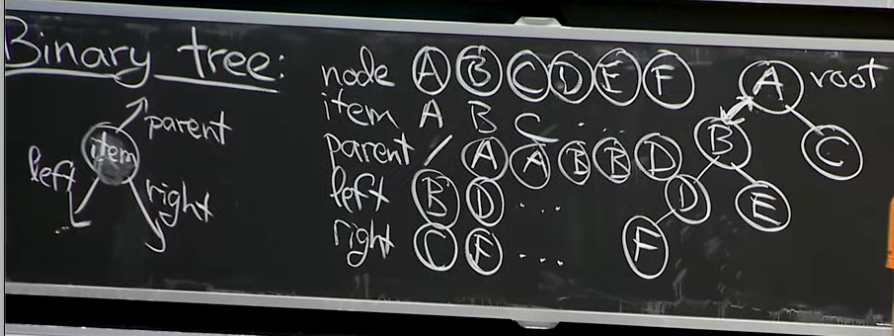 Binary tree:
item
parent
left
right
node A B C D E F
item A B C ...
parent / A A B B D
left B D ...
right C E ...
A root
B C
D E
F